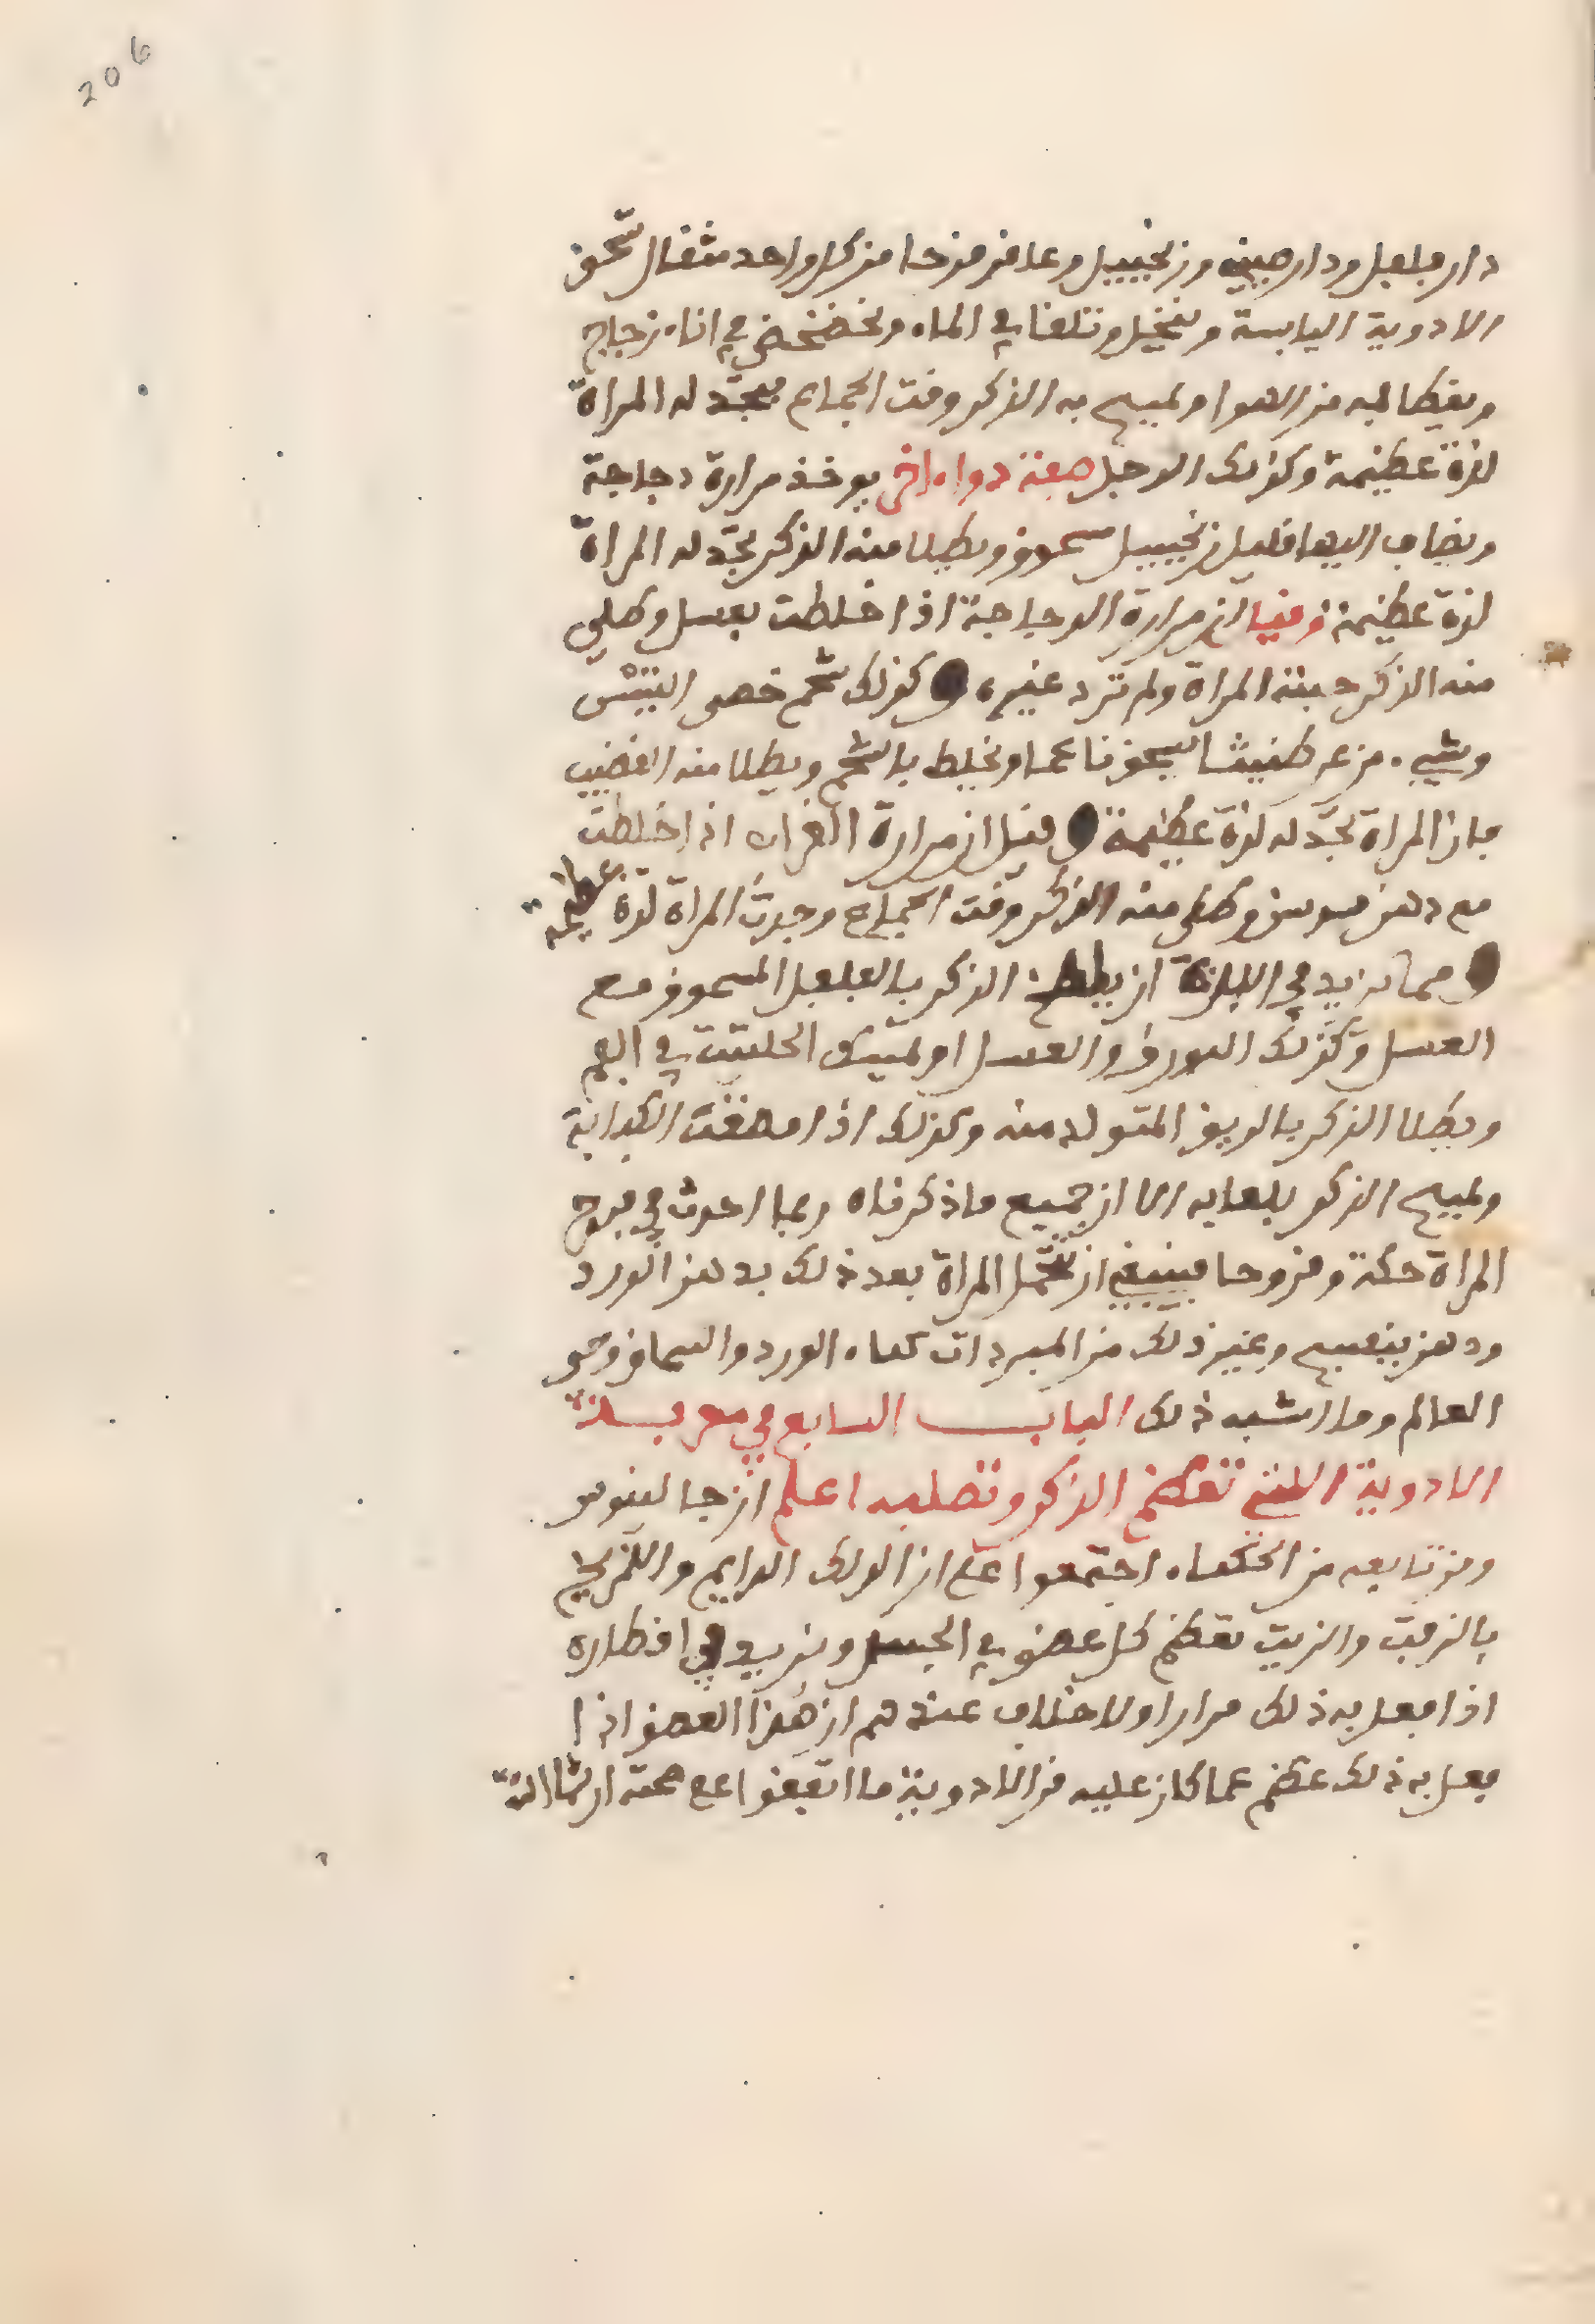 206
دار فلفل ودار صيني وزنجبيل وعاقر قرحا من كل واحد مثقال تسحق
الادوية اليابسة وتنخل وتلقا في الماء وتخضخض في اناء زجاج
ويغطا فمه من الهوا ويمسح به الذكر وقت الجماع فتجد له المراة
لذة عظيمة وكذلك الرجل صفة دواء اخر يوخذ مرارة دجاجة
ويضاف اليها قليل زنجبيل مسحوق ويطلا منه الذكر تجد له المراة
لذة عظيمة وقيل ان مرارة الدجاجة اذا خلطت بعسل وطلي
منه الذكر حبته المراة ولم ترد غيره وكذلك شحم خصى التيس
وشيء من عرطنيثا يسحق ناعما ويخلط بالشحم ويطلا منه القضيب
فان المراة تجد له لذة عظيمة وقيل ان مرارة الغراب اذا خلطت
مع دهن سوسن وطلي منه الذكر وقت الجماع وجدت المراة لذة عظيمة
ومما يزيد في اللذة ان يلطخ الذكر بالفلفل المسحوق مع
العسل وكذلك البورق والعسل او يمسك الحلتيت في الفم
ويطلا الذكر بالريق المتولد منه وكذلك اذا مضغت الكبابة
ويمسح الذكر بلعابه الا ان جميع ما ذكرناه ربما احدث في فروج
المراة حكة وقروحا فينبغي ان تتحمل المراة بعد ذلك بدهن الورد
ودهن بنفسج وغير ذلك من المبردات كماء الورد والسماق وحي
العالم وما اشبه ذلك الباب السابع في معرفة
الادوية التي تعظم الذكر وتصلبه اعلم ان جالينوس
ومن تابعه من الحكماء اجتمعوا على ان الدلك الدايم والتمريخ
بالزفت والزيت تعظم كل عضو في الجسد ويزيد في اقطاره
اذا فعل به ذلك مرارا ولا خلاف عندهم ان هذا العضو اذا
فعل به ذلك عظم عما كان عليه من الادوية ما اتفقوا على صحته